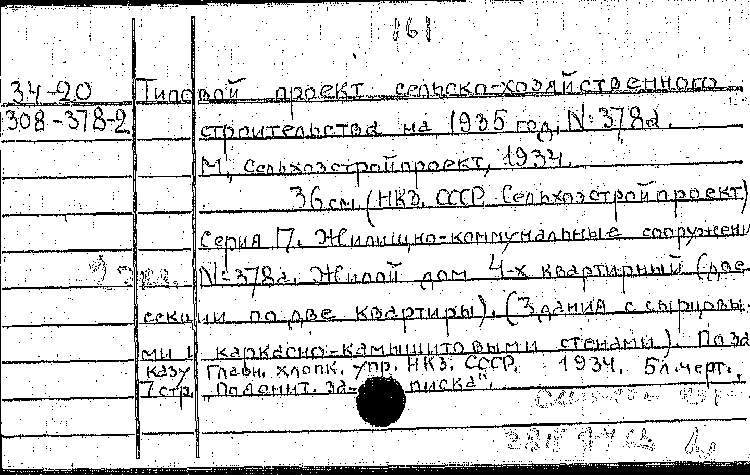 161
34-20 Типовой проект сельско-хозяйственного
308-378-2 строительства на 1935 год, №378а.
М, Сельхозстройпроект, 1934.
36см. (НКЗ. СССР. Сельхозстройпроект)
Серия П. Жилищно-коммунальные сооружени
№378а. Жилой дом 4-х квартирный (две
секции по две квартиры). (Здания с сырцовы-
ми и каркасно-камышитовыми стенами). По за
казу Главн. хлопк. упр. НКЗ. СССР. 1934. 5л.черт.,
7стр. "Пояснит. за- писка".